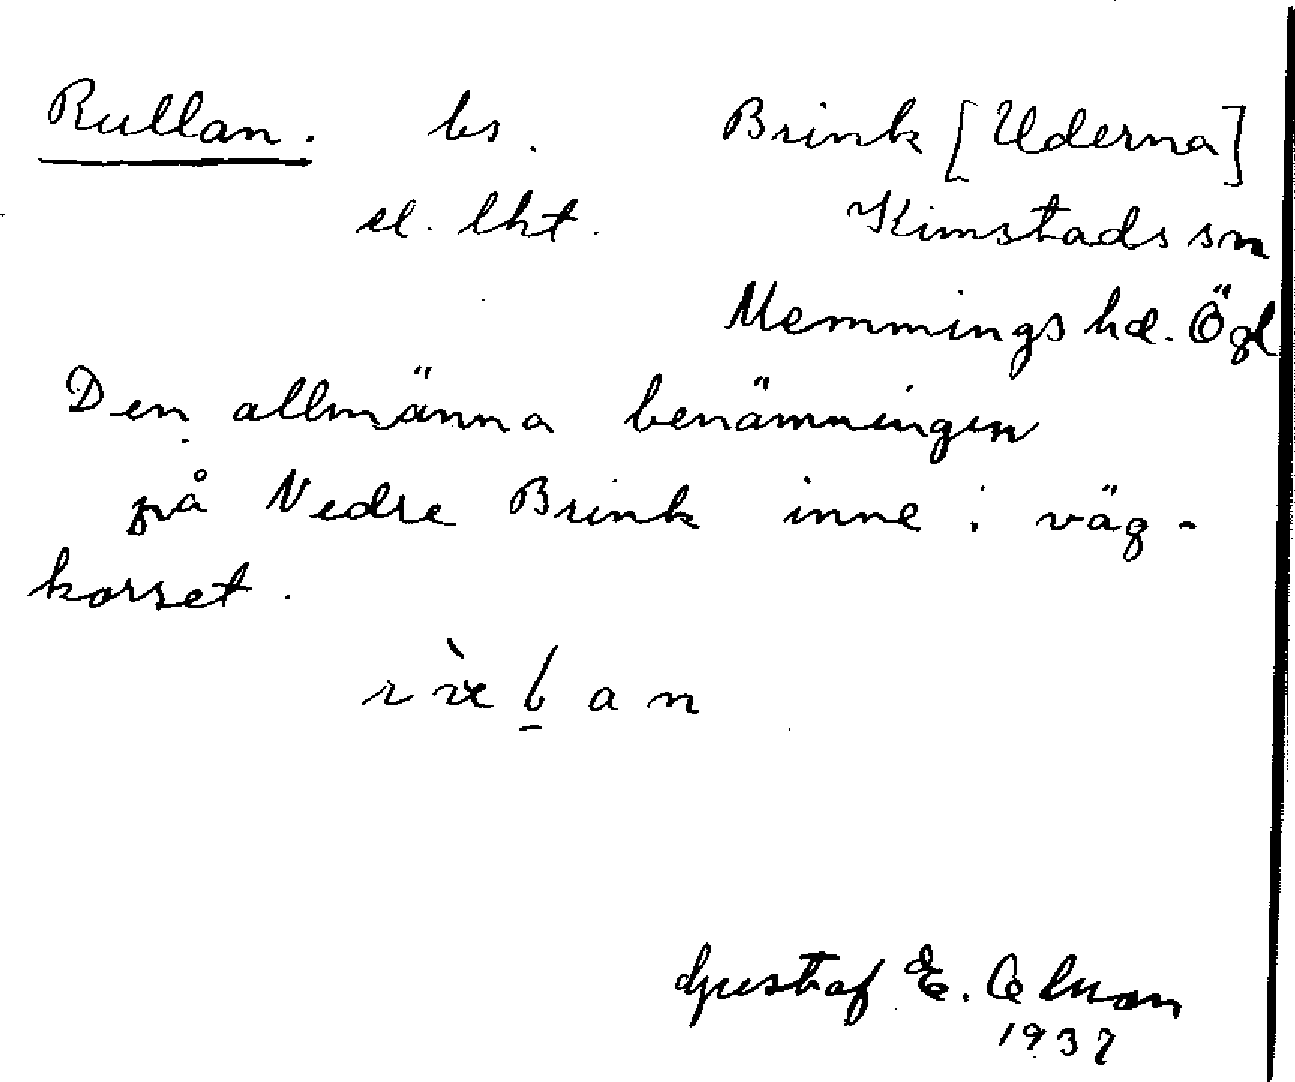 Rullan. bs. Brink [Uderna]
el. lht. Kimstads sn
Memmings hd. Ögl
Den allmänna benämningen
på Nedre Brink inne i väg-
korset.
Gustaf E.
1937